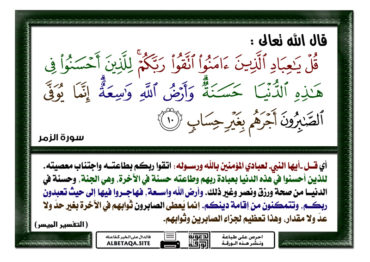 قال الله تعالى :
قُلْ يَٰعِبَادِ ٱلَّذِينَ ءَامَنُوا۟ ٱتَّقُوا۟ رَبَّكُمْ ۚ لِلَّذِينَ أَحْسَنُوا۟ فِى
هَٰذِهِ ٱلدُّنْيَا حَسَنَةٌ ۗ وَأَرْضُ ٱللَّهِ وَٰسِعَةٌ ۗ إِنَّمَا يُوَفَّى
ٱلصَّٰبِرُونَ أَجْرَهُم بِغَيْرِ حِسَابٍ ١٠
سورة الزمر
أي قل -أيها النبي- لعبادي المؤمنين بالله ورسوله: اتقوا ربكم بطاعته واجتناب معصيته.
للذين أحسنوا في هذه الدنيا بعبادة ربهم وطاعته حسنة في الآخرة، وهي الجنة، وحسنة في
الدنيا من صحة ورزق ونصر وغير ذلك. وأرض الله واسعة، فهاجروا فيها إلى حيث تعبدون
ربكم، وتتمكنون من إقامة دينكم. إنما يعطى الصابرون ثوابهم في الآخرة بغير حد ولا
عد ولا مقدار، وهذا تعظيم لجزاء الصابرين وثوابهم.
(التفسير الميسر)
احرص على طباعة
ونشر هذه الورقة
فالدال على الخير كفاعله
ALBETAQA.SITE